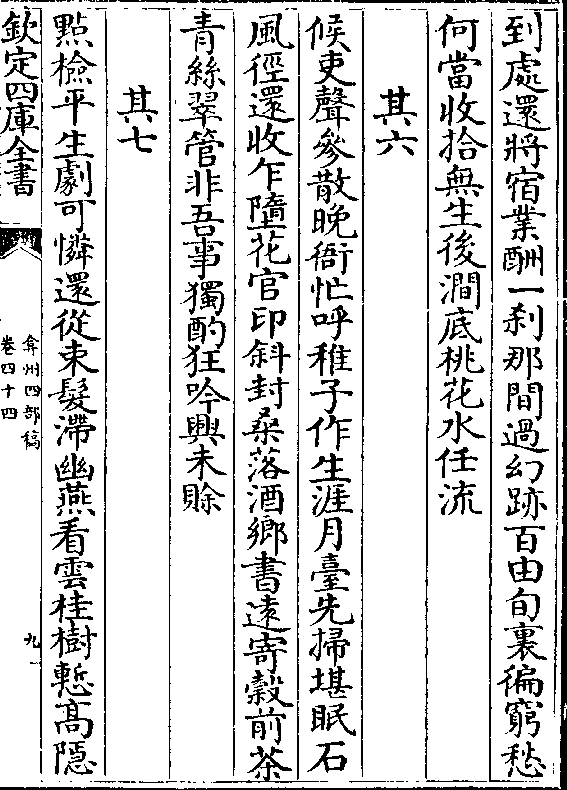 到處還將宿業酬一刹那間過幻跡百由旬裏徧窮愁
何當收拾無生後澗底桃花水任流
其六
候吏聲參散晚衙忙呼稚子作生涯月臺先掃堪眠石
風徑還收乍墮花官印斜封桑落酒鄉書遠寄榖前茶
青絲翠管非吾事獨酌狂吟興未賖
其七
㸃檢平生劇可憐還從束髮滯幽燕看雲桂樹慙髙隱
欽定四庫全書
弇州四部稿
卷四十四
九